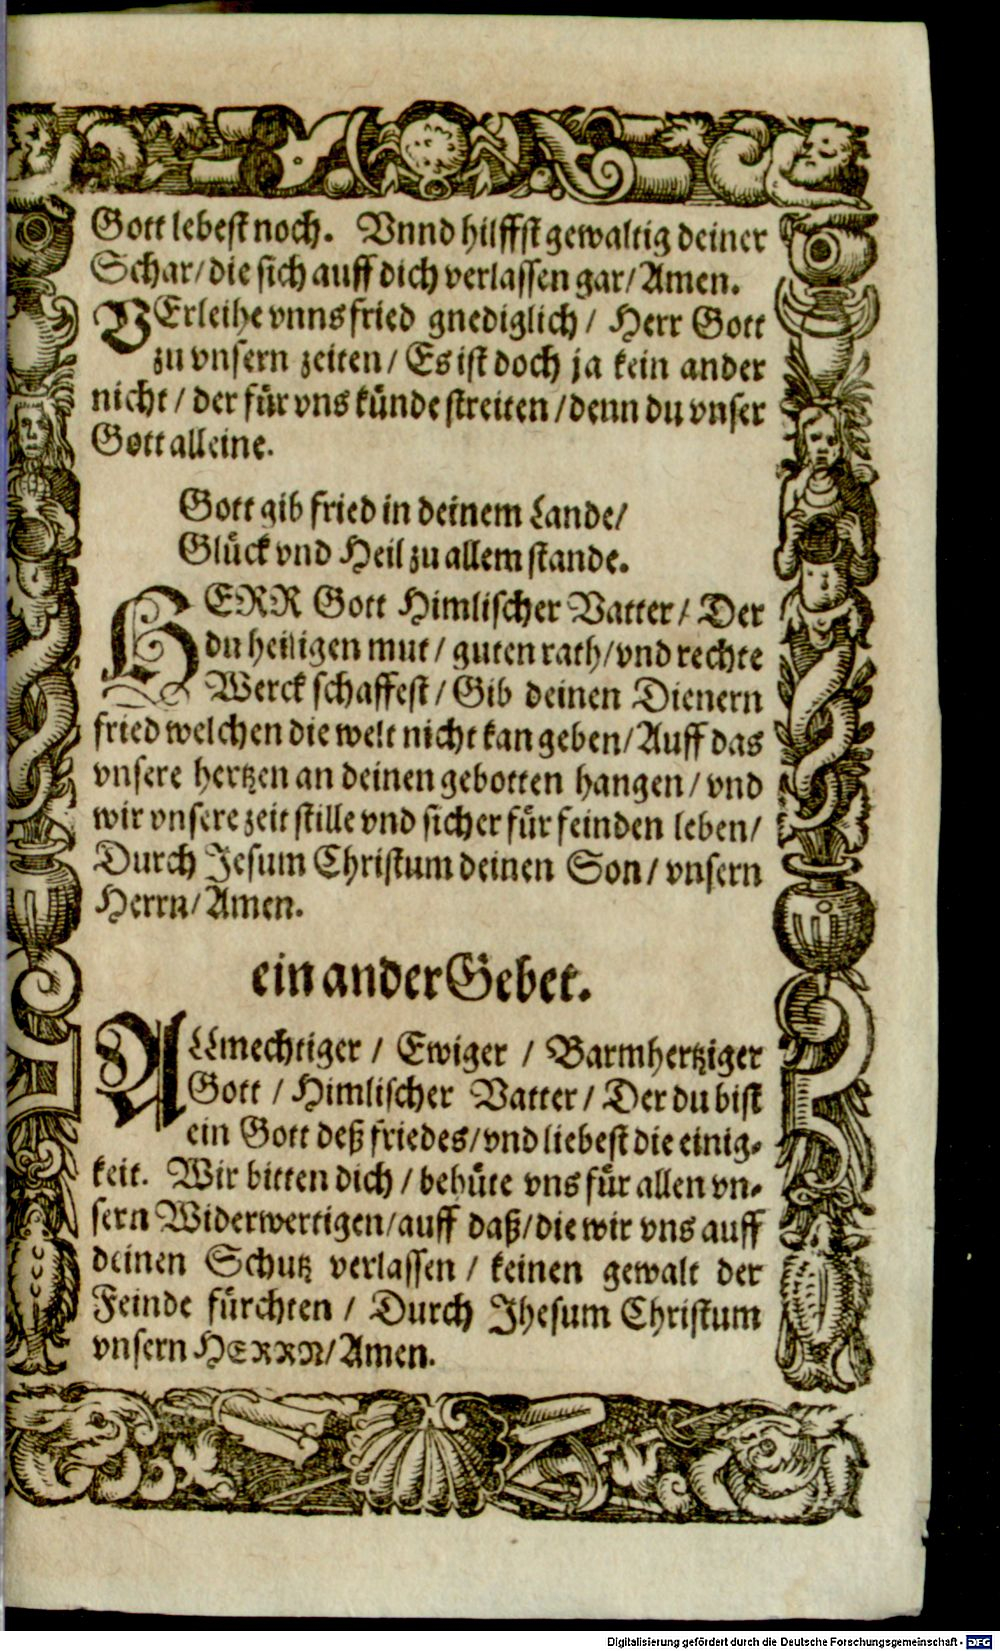 Gott lebest noch. Vnnd hilffst gewaltig deiner
Schar/ die sich auff dich verlassen gar/ Amen.
VErleihe vnns fried gnediglich/ Herr Gott
zu vnsern zeiten/ Es ist doch ja kein ander
nicht/ der für vns künde streiten/ denn du vnser
Gott alleine.
Gott gib fried in deinem Lande/
Glück vnd Heil zu allem stande.
HERR Gott Himlischer Vatter/ Der
du heiligen mut/ guten rath/ vnd rechte
Werck schaffest/ Gib deinen Dienern
fried welchen die welt nicht kan geben/ Auff das
vnsere hertzen an deinen gebotten hangen/ vnd
wir vnsere zeit stille vnd sicher für feinden leben/
Durch Jesum Christum deinen Son/ vnsern
Herrn/ Amen.
ein ander Gebet.
ALLmechtiger/ Ewiger/ Barmhertziger
Gott/ Himlischer Vatter/ Der du bist
ein Gott deß friedes/ vnd liebest die einig-
keit. Wir bitten dich/ behüte vns für allen vn-
sern Widerwertigen/ auff daß/ die wir vns auff
deinen Schutz verlassen/ keinen gewalt der
Feinde fürchten/ Durch Jhesum Christum
vnsern HERRN/ Amen.
Digitalisierung gefördert durch die Deutsche Forschungsgemeinschaft - DFG